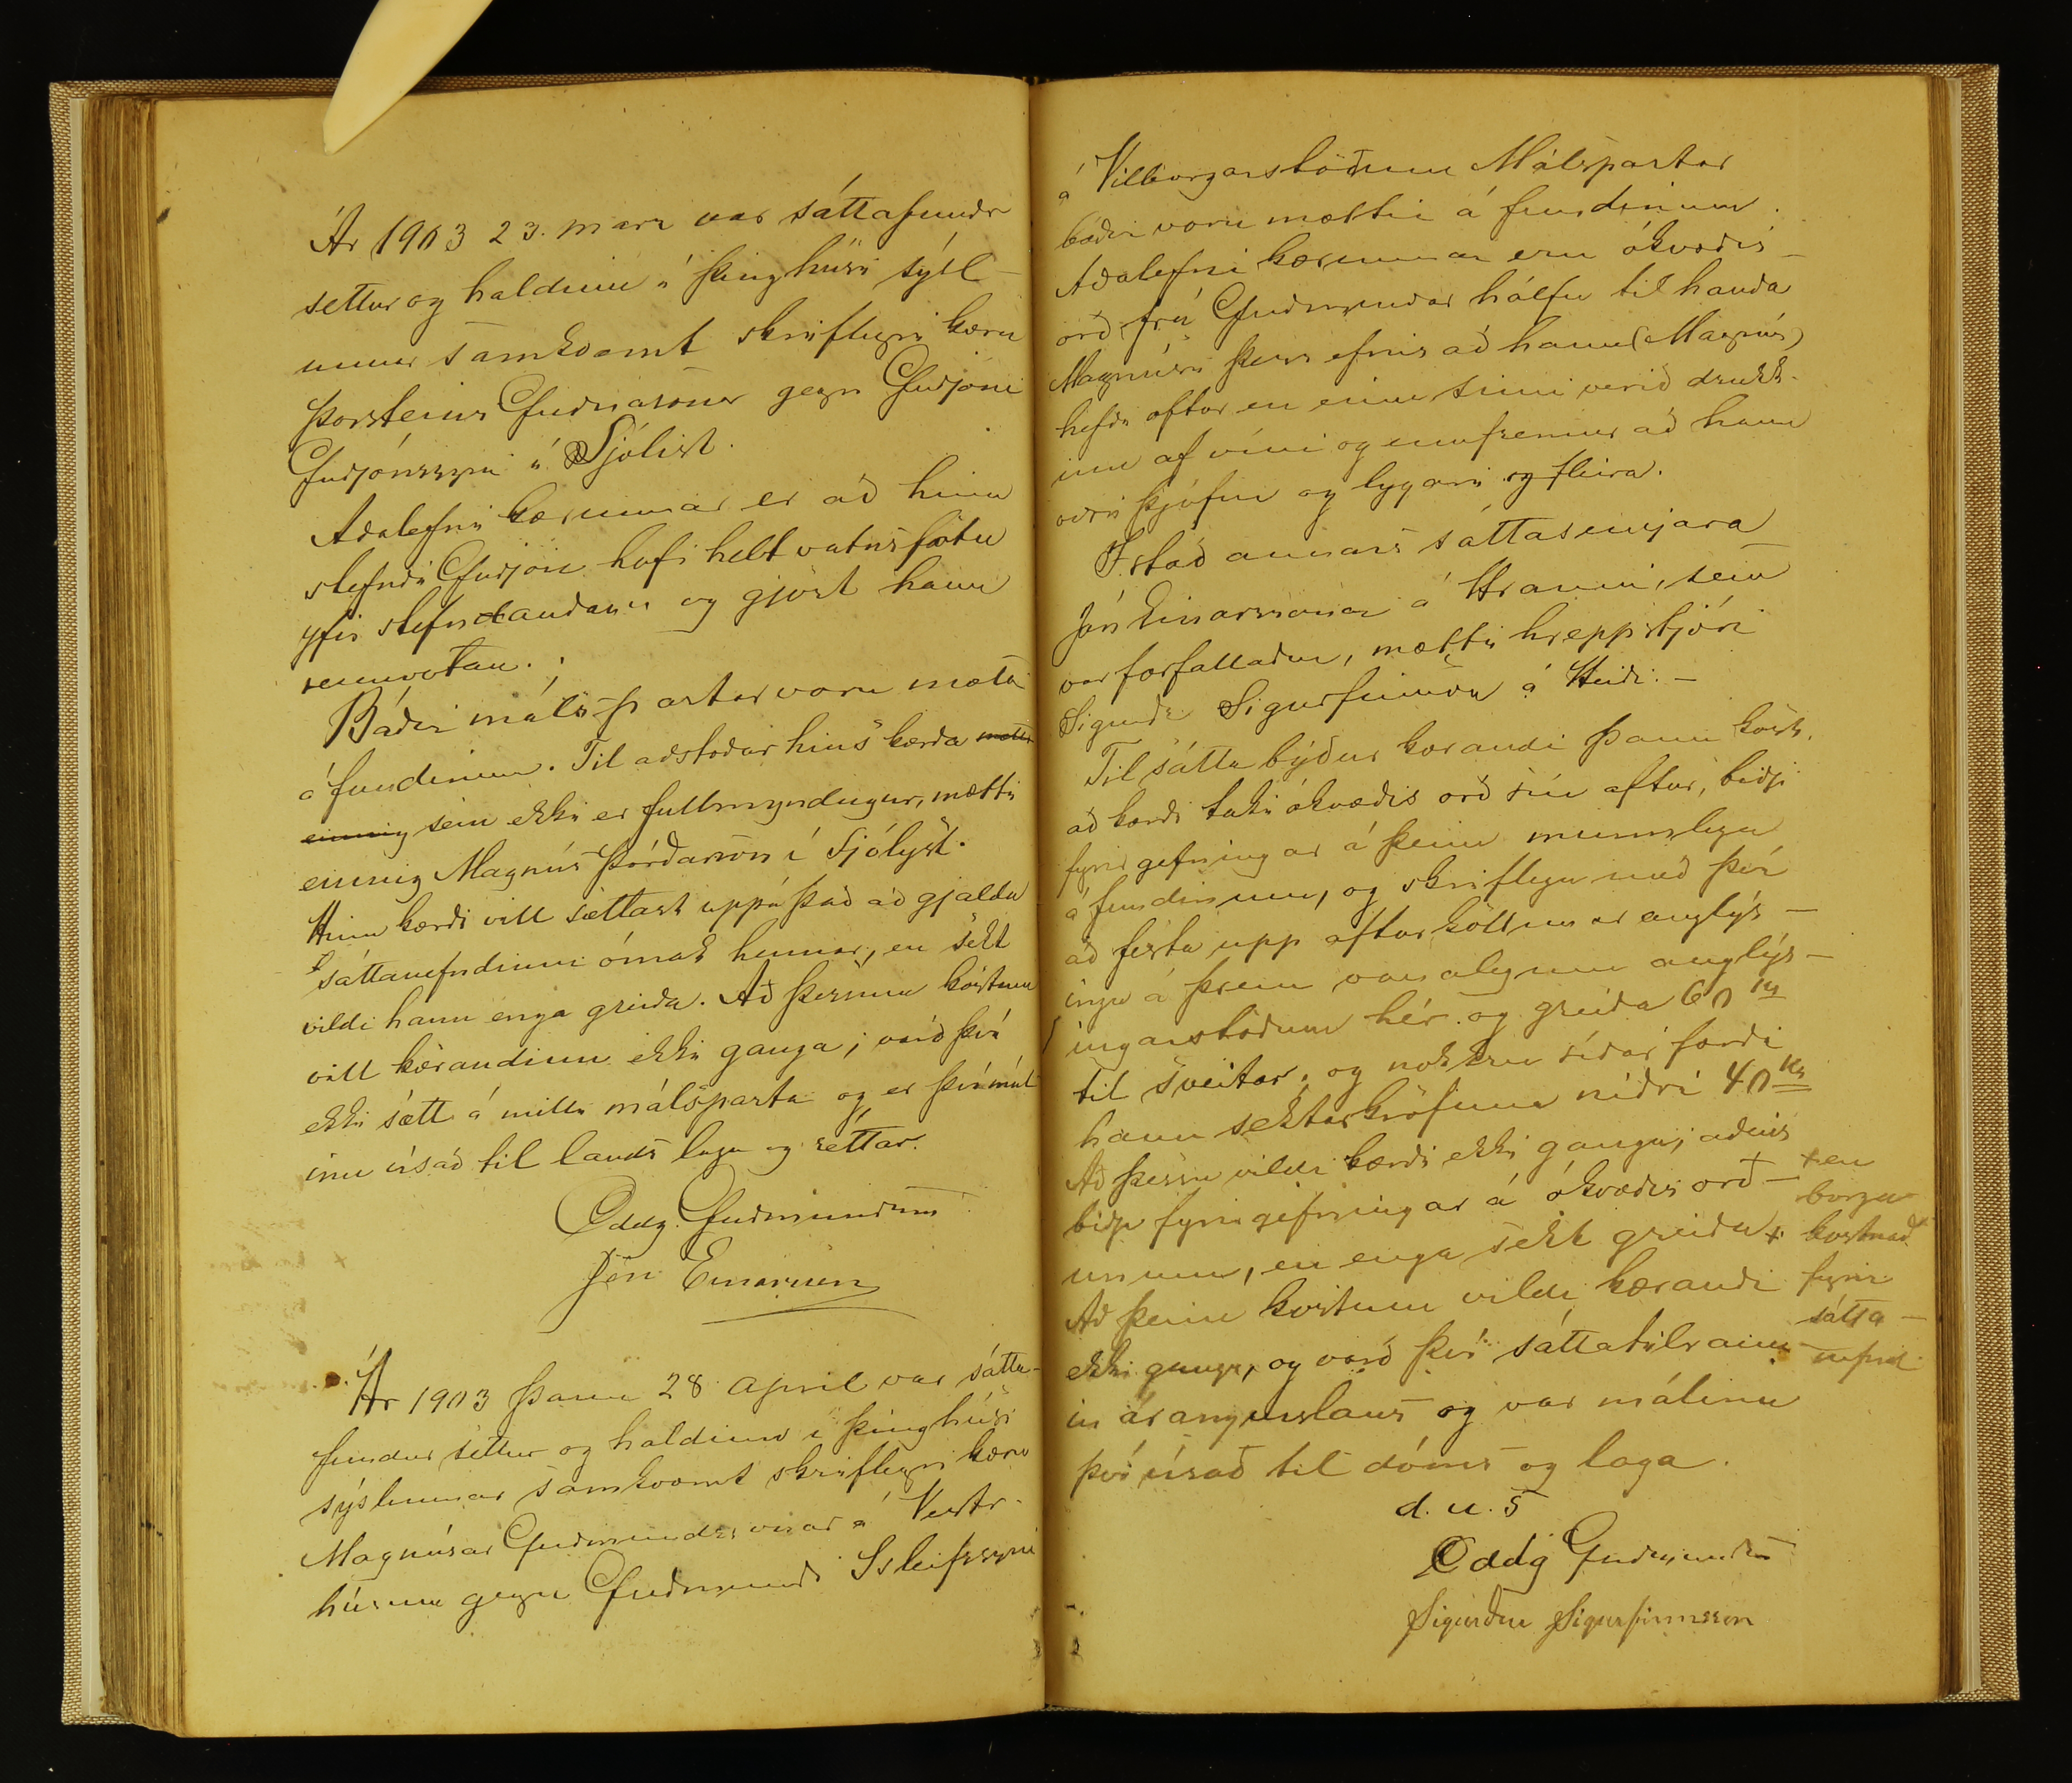 Ár 1903 23. marz var sáttafundr
settur og haldinn í þinghúsi sýsl-
unnar samkvæmt skriflegri kæru
Þorsteins Guðnasonar gegn Guðjóni
Guðjónssyni á Sjólist.
Aðalefni kærunnar er að hinn
stefndi Guðjón hafi helt vatnsfötu
yfir stefnandann og gjört hann
rennvotan.
Báðir málspartar voru mætti
á fundinum. Til aðstoðar hins kærða mætti
einnig sem ekki er fullmyndugur, mætti
einnig Magnús Þórðarson í Sjólyst.
Hinn kærði vill sættast uppá það að gjalda
sáttanefndinni ómak hennar, en sekt
vildi hann enga greiða. Að þessum kostum
vill kærandinn ekki ganga; varð því
ekki sætt á milli málsparta og er því mál
inu vísað til lands laga og réttar.
Oddg. Guðmundsson
Jón Einarsson
Ár 1903 þann 28 April var sátta-
fundur settur og haldinn í þinghúsi
sýslunnar samkvæmt skriflegri kæru
Magnúsar Guðmundssonar á Vestr-
húsum gegn Guðmundi Isleifssyni
á Vilborgarstöðum Málspartar
báðir voru mættir á fundinum.
Aðalefni kærunnar eru ókvæðis-
orð frá Guðmundar hálfu til handa
Magnúsi þess efnis að hann (Magnús)
hefði oftar en einu sinni verið drukk-
inn af víni og ennfremur að hann
væri þjófur og lygari og fleira.
Í stað annars sáttasemjara
Jóns Einarssonar á Hrauni, sem
var forfallaður, mætti hreppstjóri
Sigurðr Sigurfinnsson á Heiði. -
Til sátta býður kærandi þann kost,
að kærði taki ókvæðis orð sín aftur, biðji
fyrirgefningar á þeim munnlega
á fundinum, og skriflega með því
að festa upp afturköllunar auglýs-
ingu á þrem vanalegum auglýs-
ingarstöðum hér og greiða 60 kr
til sveitar, og nokkru síðar færði
hann sektarkröfuna niðri 40 kr
Að þessu vildi kærði ekki ganga; aðeins
biðja fyrirgefningar á ókvæðis orð-
unum, en enga sekt greiða +
+ en
borga
kostnað
fyrir
sátta-
nefnd
Að þeim kostum vildi kærandi
ekki ganga, og varð því sáttatilraun-
in árangurslaus og var málinu
því vísað til dóms og laga.
d. u. s
Oddg Guðmundsson
Sigurður Sigurfinnsson